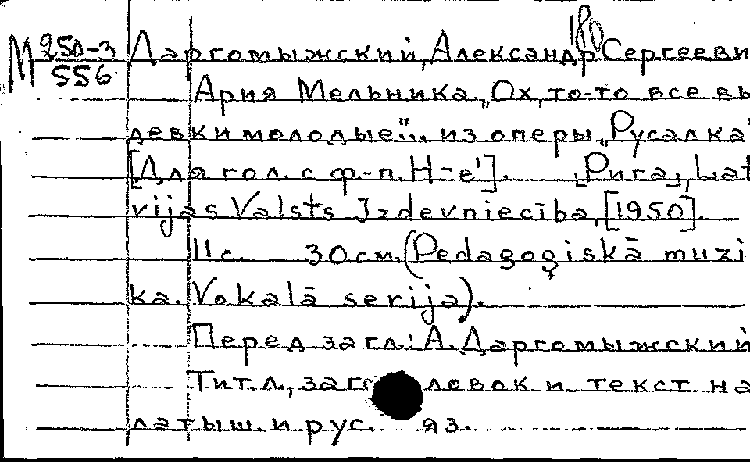 М 250-3/556
Даргомыжский, Александр Сергееви
Ария Мельника „Ох, то-то все вы
девки молодые"... из оперы „Русалка"
[Для гол. с ф.-п. Н-е']. „Рига", Lat
vijas Valsts Izdevniecība, [1950].
11 с. 30 см. (Pedagoģiskā muzi
ka. Vokalā serija).
Перед загл.: А. Даргомыжский
Тит. л., заголовок и текст на
латыш. и рус. яз.